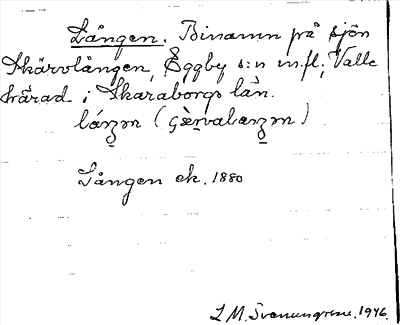 Lången. Binamn på sjön
Skärvlången, Eggby s:n m.fl., Valle
härad i Skaraborgs län.
Lången ek. 1880
L M. Svanungrene. 1946.